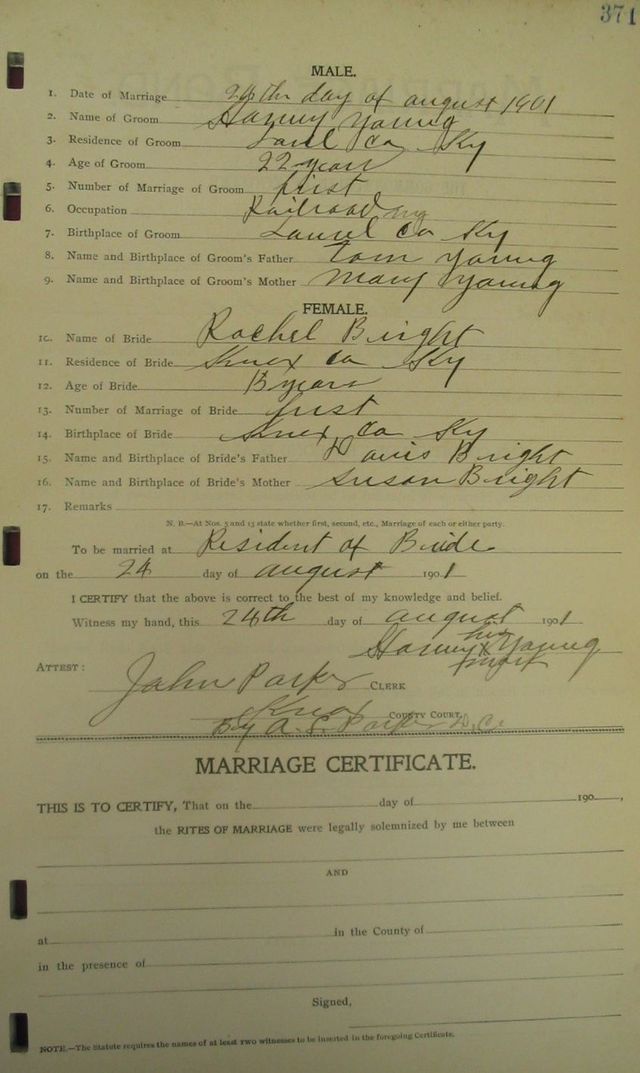 371
MALE.
1. Date of Marriage 24th day of august 1901
2. Name of Groom Harvey Young
3. Residence of Groom Laurel Co Ky
4. Age of Groom 22 years
5. Number of Marriage of Groom first
6. Occupation Railroading
7. Birthplace of Groom Laurel Co Ky
8. Name and Birthplace of Groom's Father Tom Young
9. Name and Birthplace of Groom's Mother Mary Young
FEMALE.
10. Name of Bride Rachel Bright
11. Residence of Bride Knox Co Ky
12. Age of Bride years
13. Number of Marriage of Bride first
14. Birthplace of Bride Knox Co Ky
15. Name and Birthplace of Bride's Father Bright
16. Name and Birthplace of Bride's Mother Susan Bright
17. Remarks
N. B.—At Nos. 5 and 13 state whether first, second, etc., Marriage of each or either party.
To be married at Resident of Bride
on the 24 day of august 1901
I CERTIFY that the above is correct to the best of my knowledge and belief.
Witness my hand, this 24th day of august 1901
his
Harvey X Young
mark
ATTEST:
John Parker CLERK
Knox COUNTY COURT.
By A. Parker D.C.
MARRIAGE CERTIFICATE.
THIS IS TO CERTIFY, That on the day of 190 ,
the RITES OF MARRIAGE were legally solemnized by me between
AND
at in the County of
in the presence of
Signed,
NOTE.—The Statute requires the names of at least two witnesses to be inserted in the foregoing Certificate.